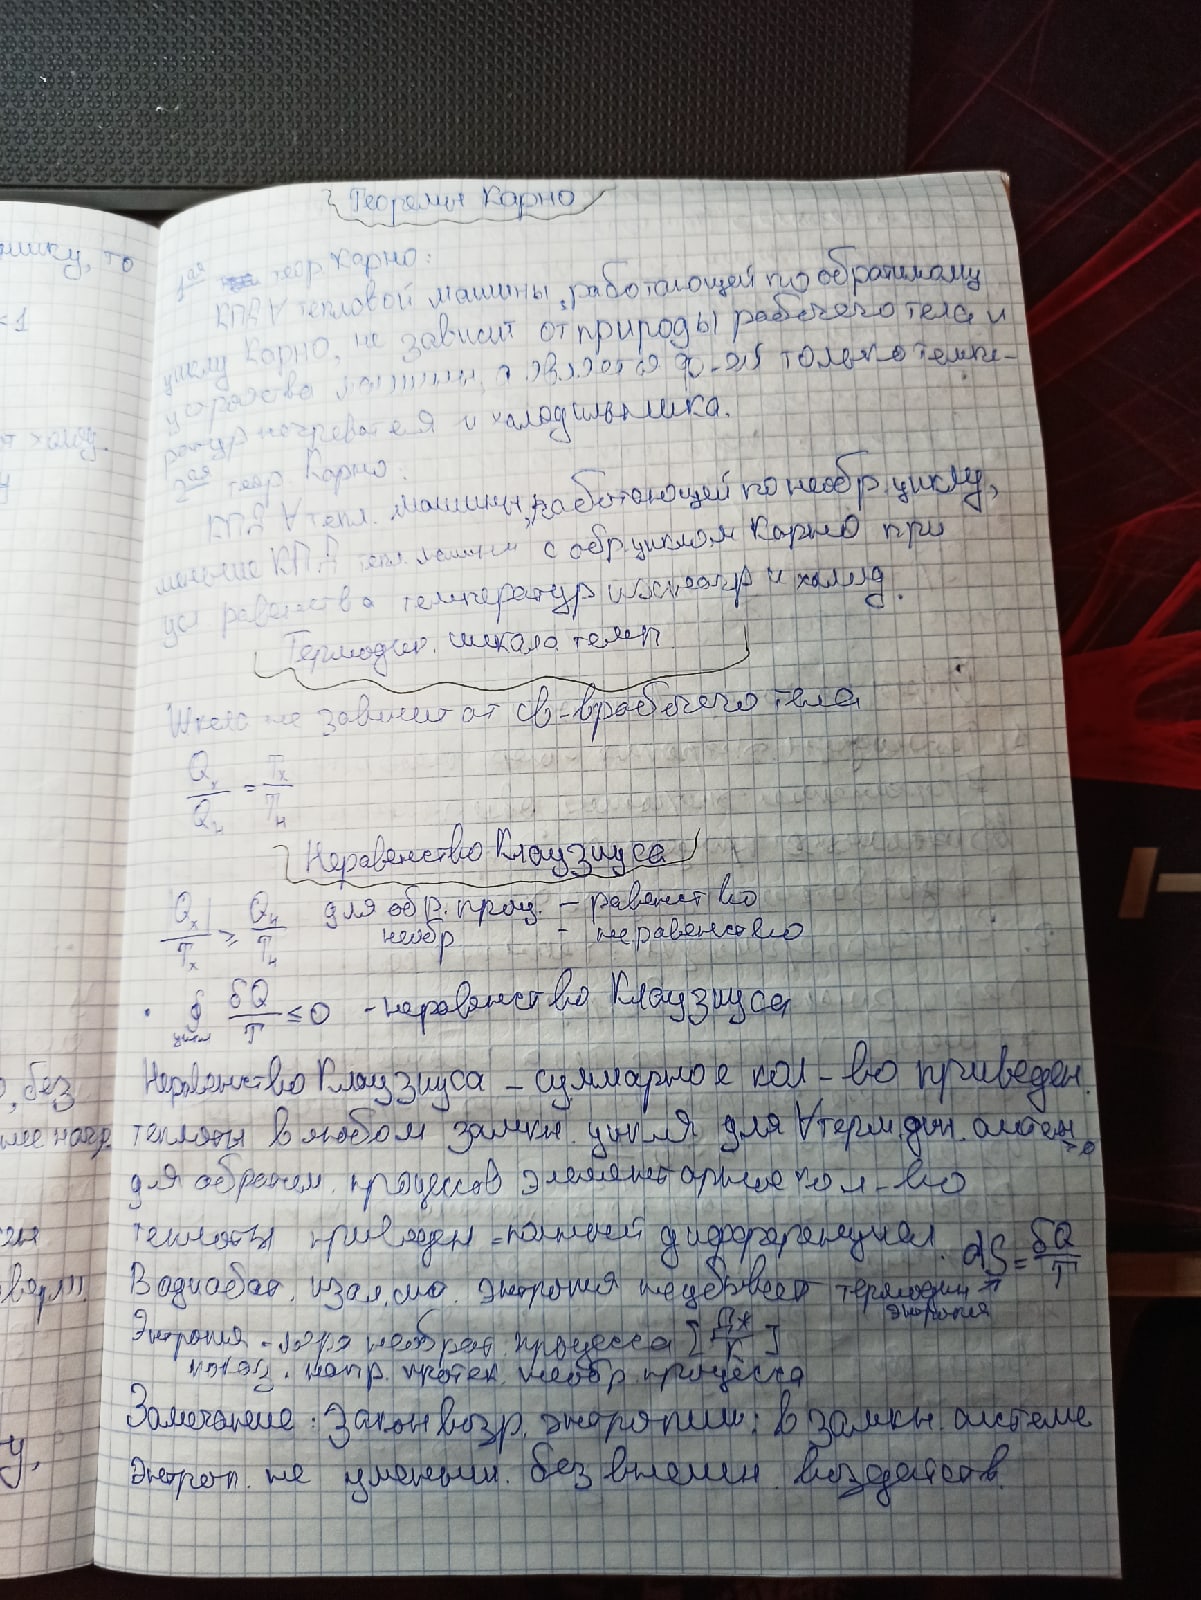 мику, то
<1
т холод.
у
о, без
мее нагр.
у,
Теоремы Карно
1ая теор Карно:
КПД ∀ тепловой машины, работающей по обратимому
циклу Карно, не зависит от природы рабочего тела и
устройства машины, а является ф-ей только темпе-
ратур нагревателя и холодильника.
2ая теор. Карно:
КПД ∀ тепл. машины, работающей по необр. циклу,
меньше КПД тепл. машины с обр циклом Карно при
усл равенства температур нагр и холод.
Термодин. шкала темп.
Шкала не зависит от св-в рабочего тела
Qх/Qн = Tх/Tн
Неравенство Клаузиуса
Qх/Tх ≥ Qн/Tн для обр. проц. – равенство
необр – неравенство
∮ δQ/T ≤ 0 – неравенство Клаузиуса
цикл
Неравенство Клаузиуса – суммарное кол-во приведен.
теплоты в любом замкн. цикле для ∀ термодин. систем ≤0
для обратим. процессов элементарное кол-во
теплоты привед = полный дифференциал. dS = δQ/T
В адиабат. изол. энтропия не убывает термодин
энтропия
Энтропия – мера необрат. процесса [Дж/К]
показ. напр. протек. необр. процесса
Замечание: Закон возр. энтропии: в замкн. системе
энтроп. не уменьш. без внешн. воздейств.